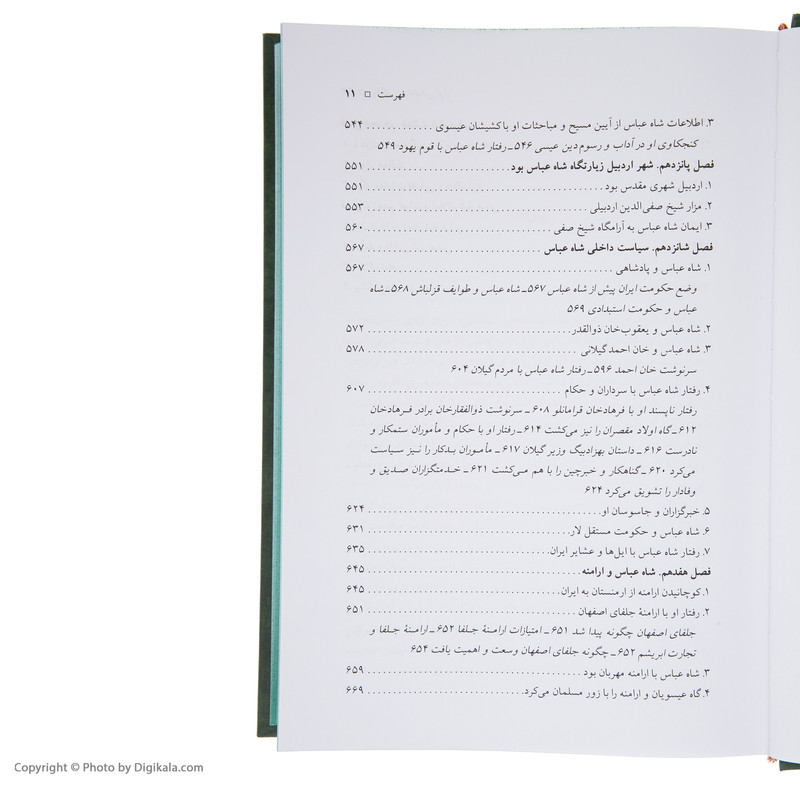 فهرست □ ۱۱
۳. اطلاعات شاه عباس از آیین مسیح و مباحثات او با کشیشان عیسوی ............. ۵۴۴
کنجکاوی او در آداب و رسوم دین عیسی ۵۴۶ ـ رفتار شاه عباس با قوم یهود ۵۴۹
فصل پانزدهم. شهر اردبیل زیارتگاه شاه عباس بود ............................. ۵۵۱
۱. اردبیل شهری مقدس بود ............................. ۵۵۱
۲. مزار شیخ صفی‌الدین اردبیلی ............................. ۵۵۳
۳. ایمان شاه عباس به آرامگاه شیخ صفی ............................. ۵۶۰
فصل شانزدهم. سیاست داخلی شاه عباس ............................. ۵۶۷
۱. شاه عباس و پادشاهی ............................. ۵۶۷
وضع حکومت ایران پیش از شاه عباس ۵۶۷ ـ شاه عباس و طوایف قزلباش ۵۶۸ ـ شاه
عباس و حکومت استبدادی ۵۶۹
۲. شاه عباس و یعقوب‌خان ذوالقدر ............................. ۵۷۲
۳. شاه عباس و خان احمد گیلانی ............................. ۵۷۸
سرنوشت خان احمد ۵۹۶ ـ رفتار شاه عباس با مردم گیلان ۶۰۴
۴. رفتار شاه عباس با سرداران و حکام ............................. ۶۰۷
رفتار ناپسند او با فرهادخان قرامانلو ۶۰۸ ـ سرنوشت ذوالفقارخان برادر فرهادخان
۶۱۲ ـ گاه اولاد مقصران را نیز می‌کشت ۶۱۴ ـ رفتار او با حکام و مأموران ستمکار و
نادرست ۶۱۶ ـ داستان بهزادبیگ وزیر گیلان ۶۱۷ ـ مأموران بدکار را نیز سیاست
می‌کرد ۶۲۰ ـ گناهکار و خبرچین را با هم می‌کشت ۶۲۱ ـ خدمتگزاران صدیق و
وفادار را تشویق می‌کرد ۶۲۴
۵. خبرگزاران و جاسوسان او ............................. ۶۲۴
۶. شاه عباس و حکومت مستقل لار ............................. ۶۳۱
۷. رفتار شاه عباس با ایل‌ها و عشایر ایران ............................. ۶۳۵
فصل هفدهم. شاه عباس و ارامنه ............................. ۶۴۵
۱. کوچانیدن ارامنه از ارمنستان به ایران ............................. ۶۴۵
۲. رفتار او با ارامنهٔ جلفای اصفهان ............................. ۶۵۱
جلفای اصفهان چگونه پیدا شد ۶۵۱ ـ امتیازات ارامنهٔ جلفا ۶۵۲ ـ ارامنهٔ جلفا و
تجارت ابریشم ۶۵۲ ـ چگونه جلفای اصفهان وسعت و اهمیت یافت ۶۵۴
۳. شاه عباس با ارامنه مهربان بود ............................. ۶۵۹
۴. گاه عیسویان و ارامنه را با زور مسلمان می‌کرد ............................. ۶۶۹
Copyright © Photo by Digikala.com